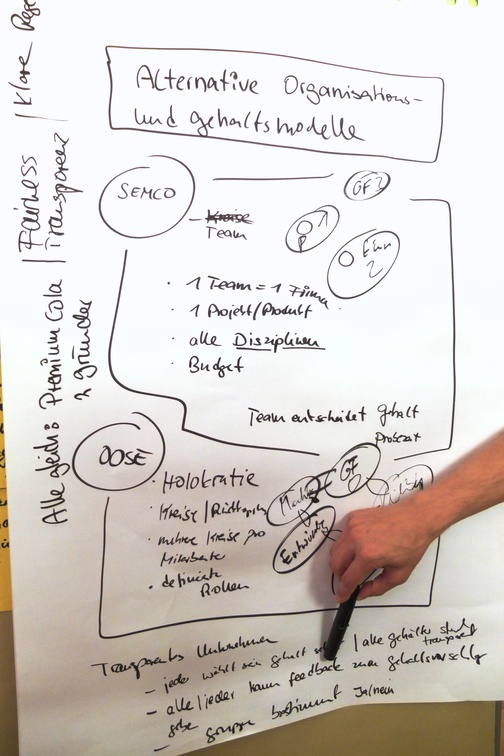 Alternative Organisations-
und Gehaltsmodelle
SEMCO
GF?
- Kreise
Team
· 1 Team = 1 Firma
· 1 Projekt/Produkt
· alle Disziplinen
· Budget
Team entscheidet Gehalt
DOSE
GF
· Holokratie
· Kreise /
· mehrere Kreise pro
Mitarbeiter
· definierte
Rollen
Transparentes Unternehmen
- jeder wählt sein Gehalt | alle Gehälter sind transparent
- alle / jeder kann feedback zum Gehaltsvorschlag
geben
- Gruppe bestimmt Ja/nein
Alle gleich: Premium Cola
2 Gründer
| Fairness
| Transparenz
| Klare